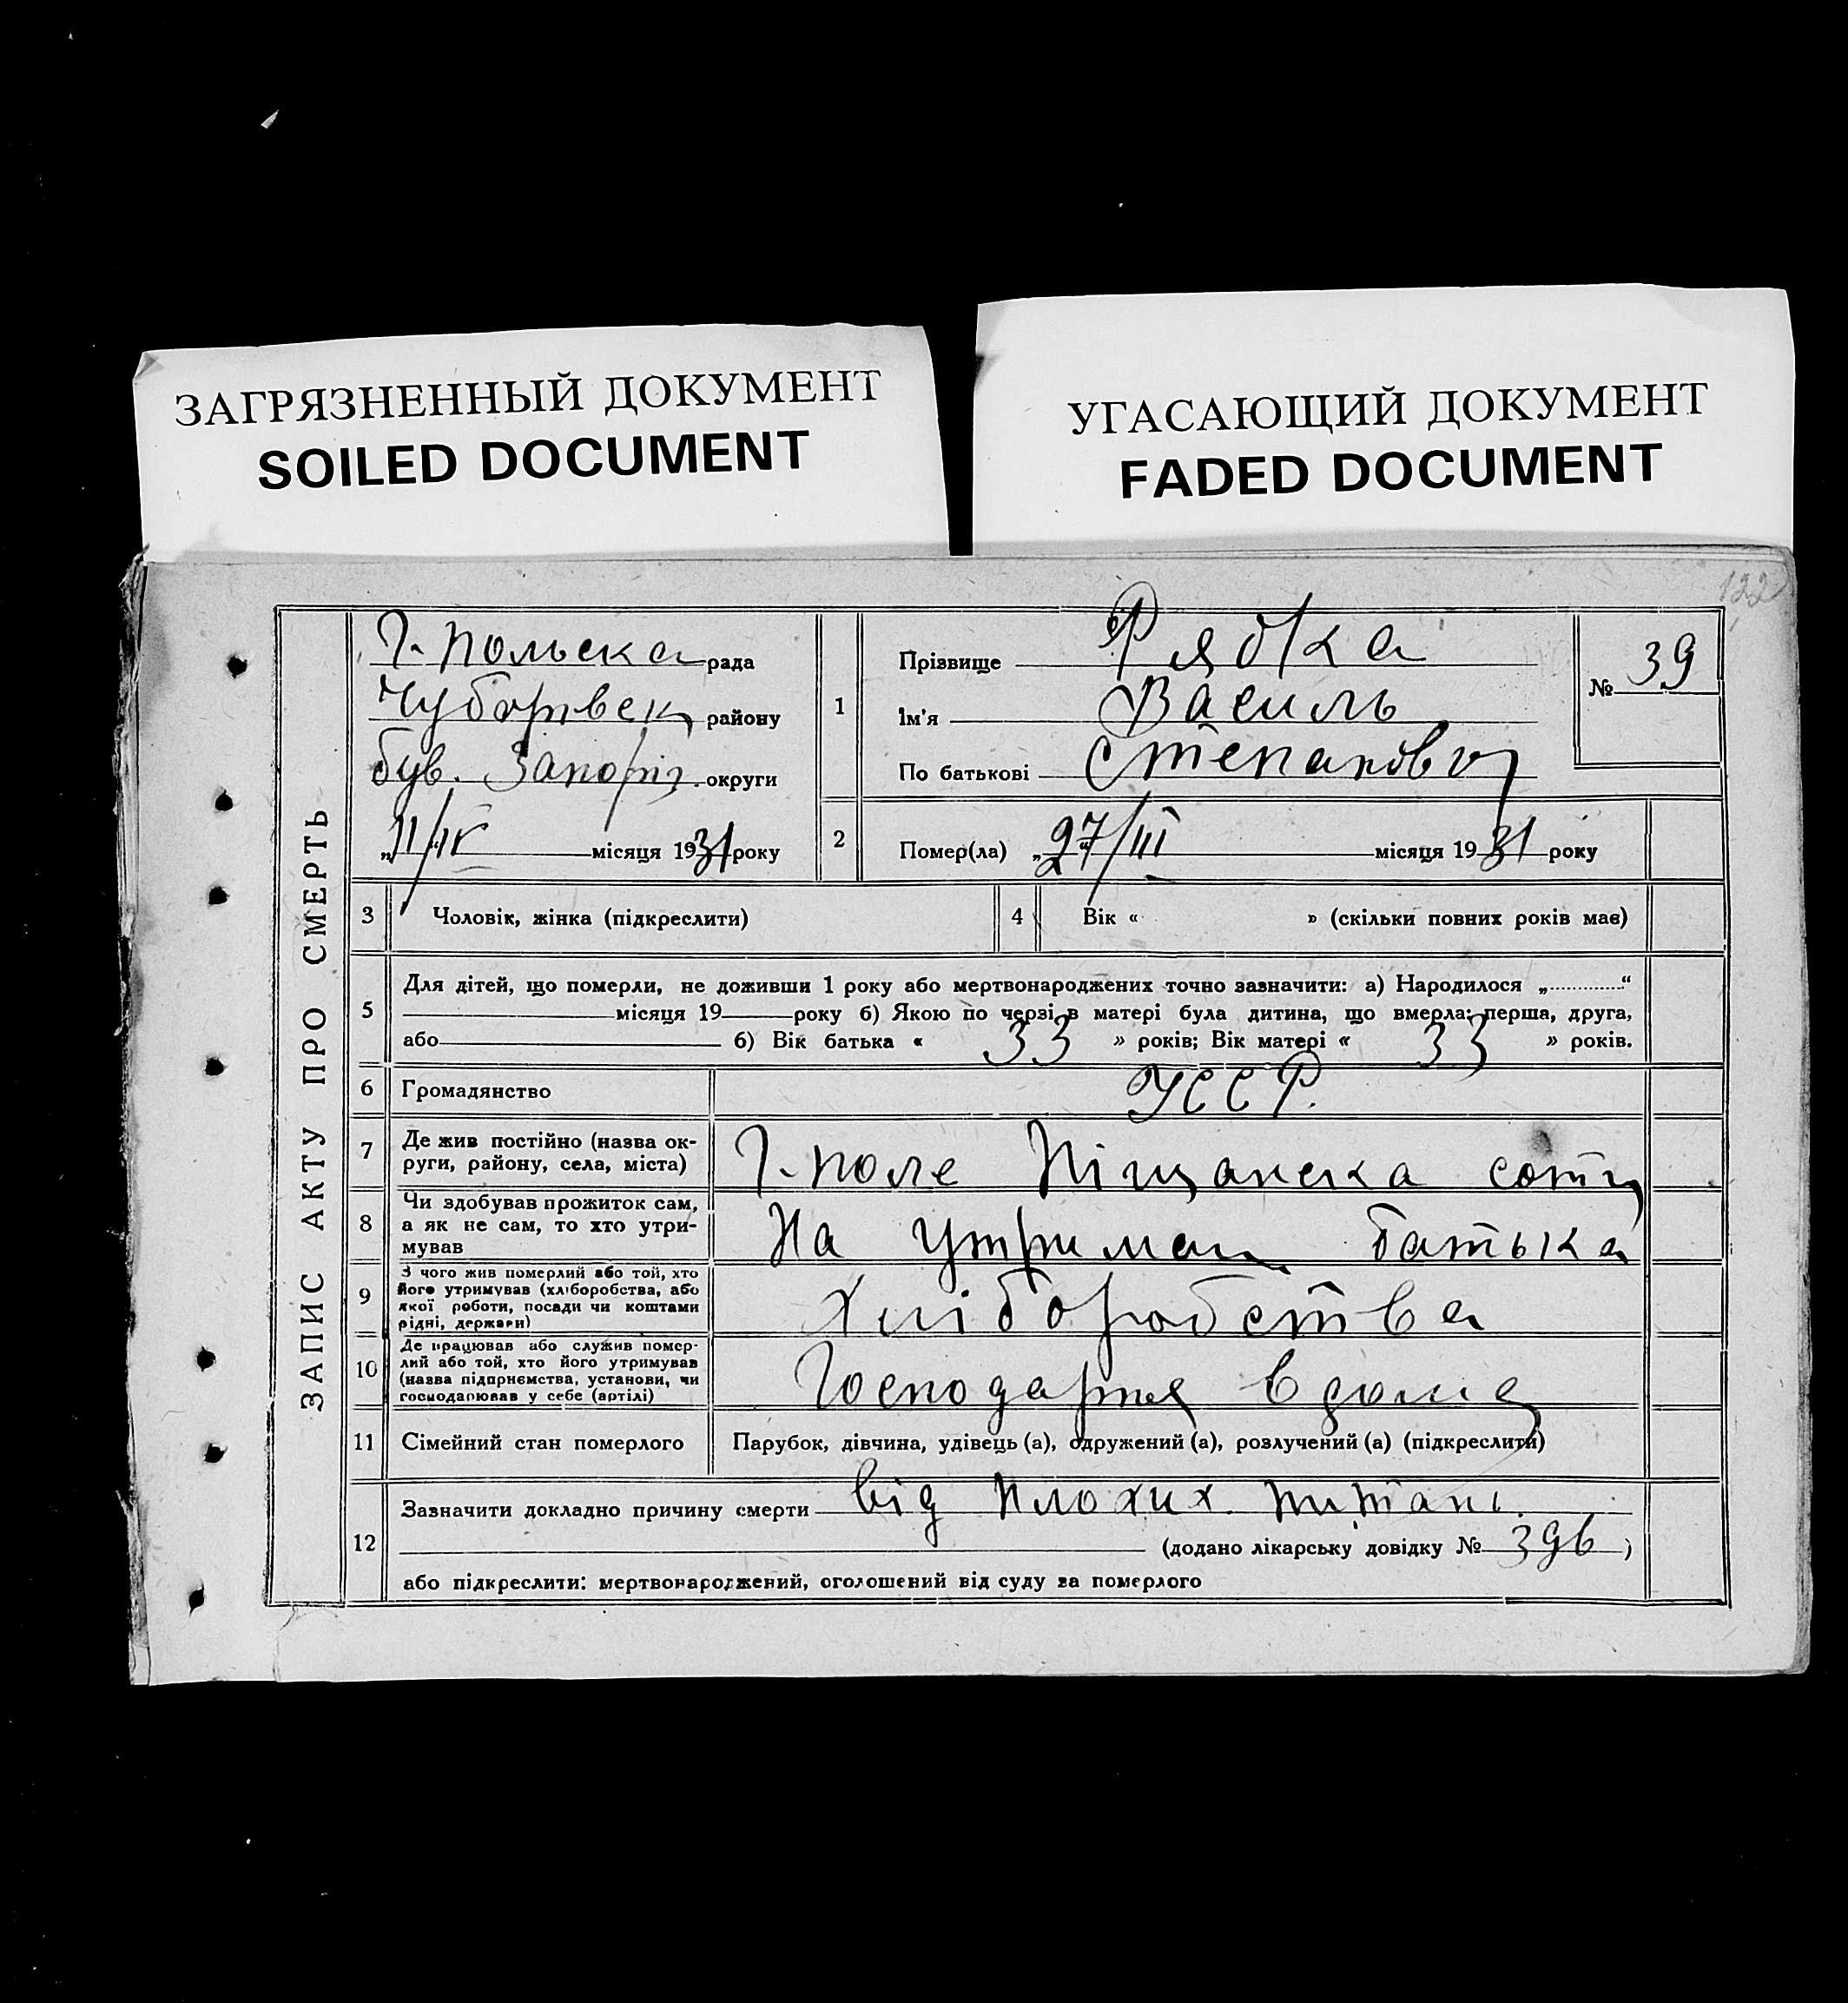 ЗАГРЯЗНЕННЫЙ ДОКУМЕНТ
SOILED DOCUMENT
УГАСАЮЩИЙ ДОКУМЕНТ
FADED DOCUMENT
122
ЗАПИС АКТУ ПРО СМЕРТЬ
Г-Польска рада
району
був. Запоріз. округи
„11/IV місяця 1931 року
1
Прізвище Рябка
Ім'я Василь
По батькові Степанович
№ 39
2
Помер(ла) „27/III місяця 1931 року
3 Чоловік, жінка (підкреслити)
4 Вік « » (скільки повних років має)
5
Для дітей, що померли, не доживши 1 року або мертвонароджених точно зазначити: а) Народилося „............“
місяця 19 року б) Якою по черзі в матері була дитина, що вмерла: перша, друга,
або б) Вік батька « 33 » років; Вік матері « 33 » років.
6 Громадянство УССР.
7 Де жив постійно (назва ок-
руги, району, села, міста)
Г-поле Піщанска сотн
8
Чи здобував прожиток сам,
а як не сам, то хто утри-
мував
На утриман батька
9
З чого жив померлий або той, хто
його утримував (хліборобства, або
якої роботи, посади чи коштами
рідні, держави)
Хліборобства
10
Де працював або служив помер-
лий або той, хто його утримував
(назва підприємства, установи, чи
господарював у себе (артілі)
в дома
11 Сімейний стан померлого Парубок, дівчина, удівець (а), одружений (а), розлучений (а) (підкреслити)
12
Зазначити докладно причину смерти від плохих питані
(додано лікарську довідку № 396)
або підкреслити: мертвонароджений, оголошений від суду за померлого